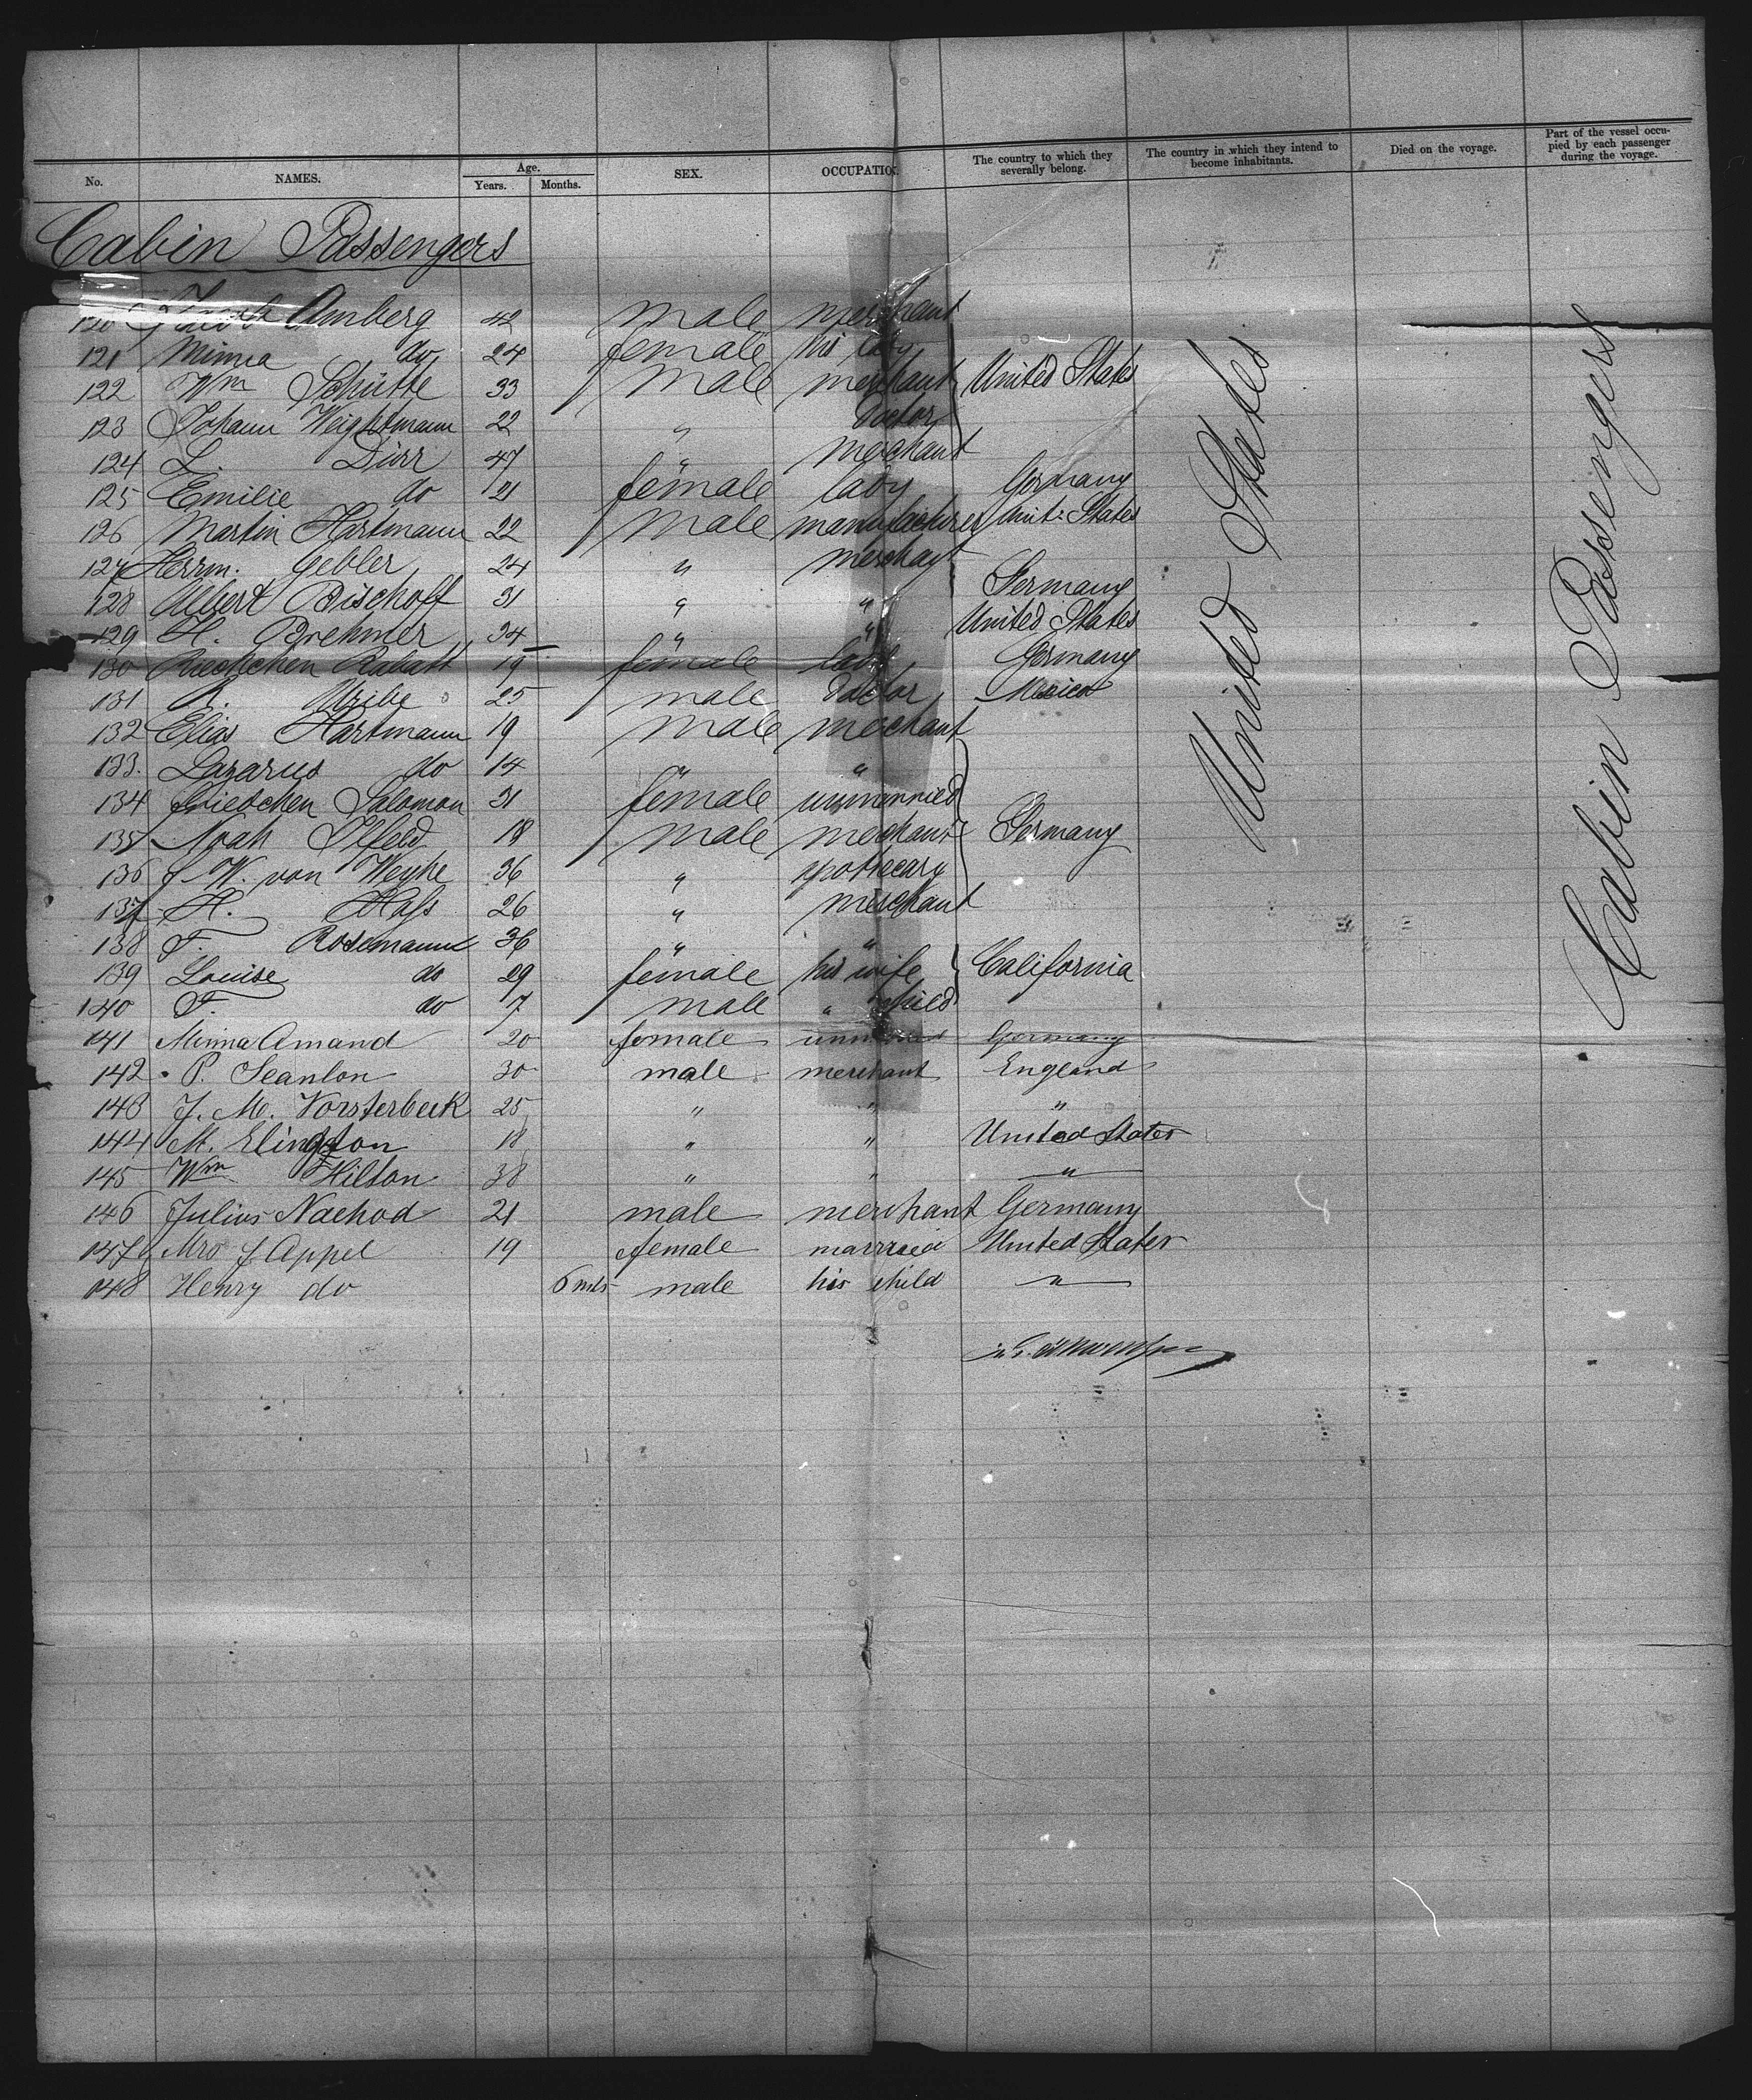 No. NAMES. Age. Years. Months. SEX. OCCUPATION. The country to which they severally belong. The country in which they intend to become inhabitants. Died on the voyage. Part of the vessel occupied by each passenger during the voyage.
Cabin Passengers
120 Amberg 42 male merchant
121 Minna do 24 female his lady
122 Wm Schütte 33 male merchant United States
123 Johann Weightmann 22 " doctor
124 L. Dürr 47 " merchant
125 Emilie do 21 female lady Germany
126 Martin Hartmann 22 male manufacturer Unit: States
127 Herrm. Gebler 24 " merchant
128 Albert Bischoff 31 " " Germany
129 H. Brehmer 34 " " United States
130 Rabatt 19 female lady Germany
131 Uribe 25 male doctor Mexico
132 Elias Hartmann 19 male merchant
133. Lazarus do 14 " "
134 Salomon 31 female unmarried
135 Noah Ilfeld 18 male merchant Germany
136 J W. von Weyhe 36 " apothecary
137 H. Hass 26 " merchant
138 F. Rosemann 36 " "
139 Louise do 29 female his wife California
140 F. do 7 male " child
141 Minna Amand 20 female Germany
142 P. Scanlon 30 male merchant England
143 J. M. Vorsterbeck 25 " " "
144 M. Elington 18 " " United States
145 Wm Hilton 38 " " "
146 Julius Nachod 21 male merchant Germany
147 Mrs J Appel 19 female married United States
148 Henry do 6 mts male his child "
United States
Cabin Passengers